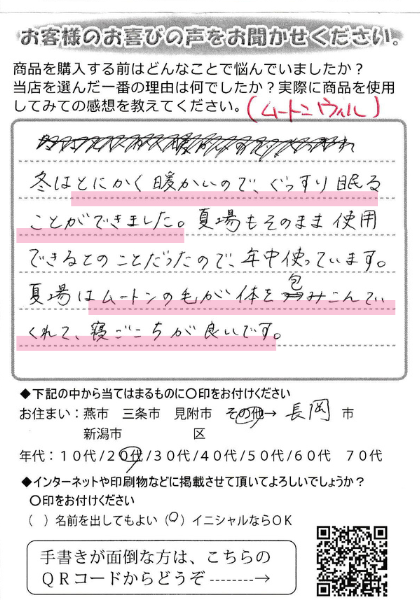 お客様のお喜びの声をお聞かせください。
商品を購入する前はどんなことで悩んでいましたか?
当店を選んだ一番の理由は何でしたか?実際に商品を使用
してみての感想を教えてください。(ムートンウィル)
冬はとにかく暖かいので、ぐっすり眠る
ことができました。夏場もそのまま使用
できるとのことだったので、年中使っています。
夏場はムートンの毛が体を包みこんでい
くれて、寝ごこちが良いです。
◆下記の中から当てはまるものに〇印をお付けください
お住まい:燕市 三条市 見附市 その他→ 長岡 市
新潟市 区
年代:10代/20代/30代/40代/50代/60代 70代
◆インターネットや印刷物などに掲載させて頂いてよろしいでしょうか?
〇印をお付けください
( )名前を出してもよい(〇)イニシャルならOK
手書きが面倒な方は、こちらの
QRコードからどうぞ--------→